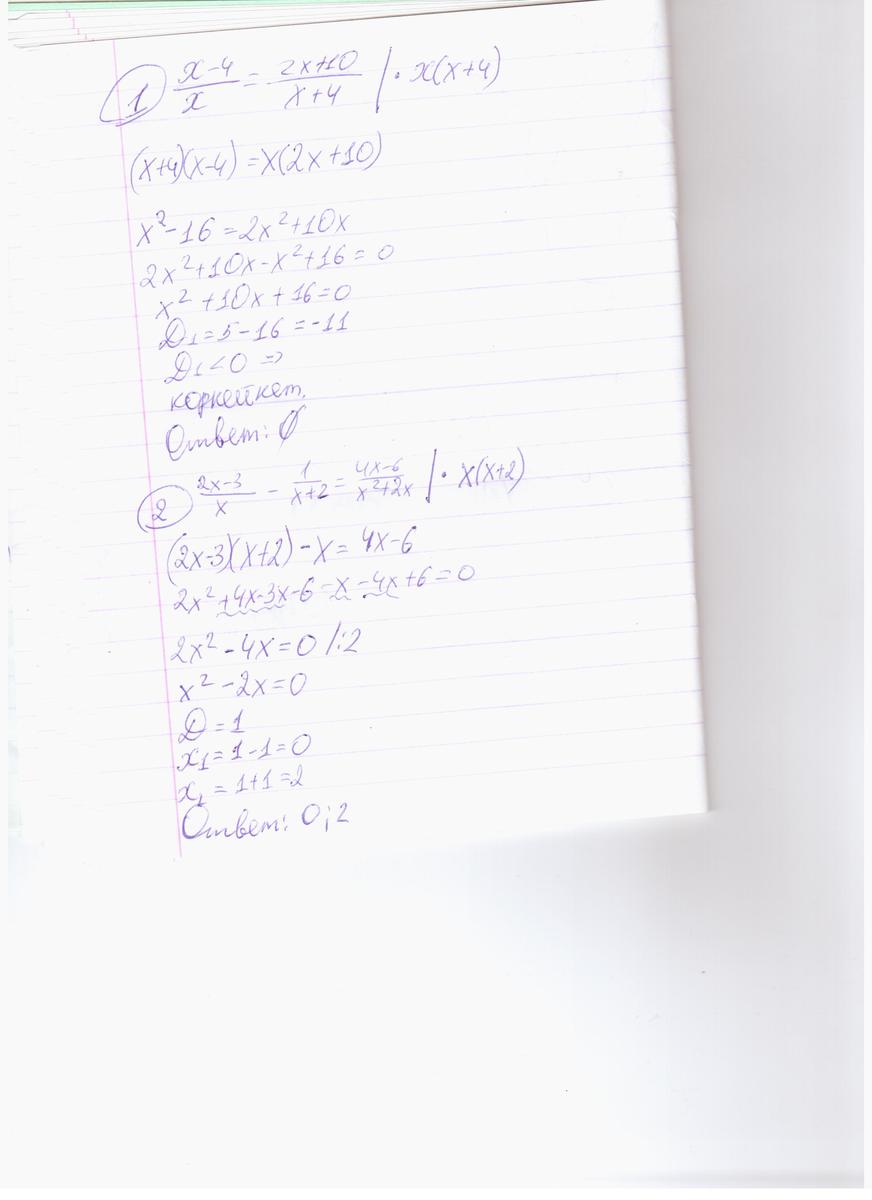 1 (x-4)/x = (2x+10)/(x+4) | · x(x+4)
(x+4)(x-4) = x(2x+10)
x²-16 = 2x²+10x
2x²+10x-x²+16 = 0
x²+10x+16=0
D₁=5-16=-11
D₁<0 =>
корней нет.
Ответ: ∅
2 (2x-3)/x - 1/(x+2) = (4x-6)/(x²+2x) | · x(x+2)
(2x-3)(x+2)-x = 4x-6
2x²+4x-3x-6-x-4x+6=0
2x²-4x=0 /:2
x²-2x=0
D=1
x₁=1-1=0
x₁=1+1=2
Ответ: 0;2